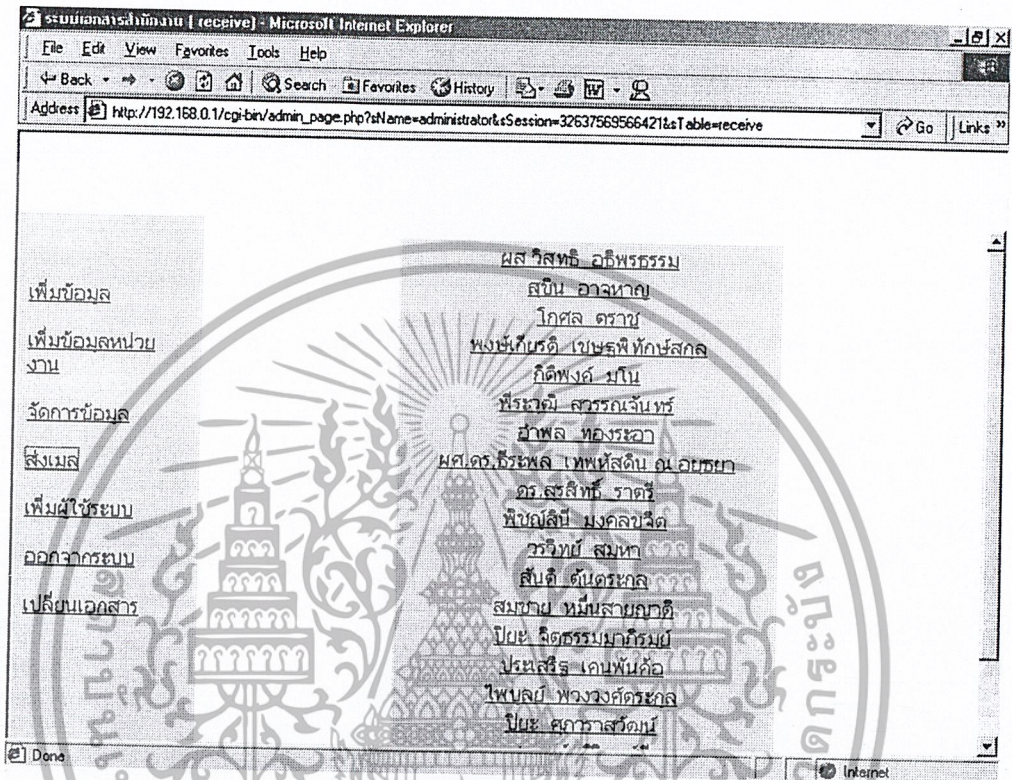 ระบบเอกสารสำนักงาน [ receive] - Microsoft Internet Explorer
File Edit View Favorites Tools Help
Back Search Favorites History
Address http://192.168.0.1/cgi-bin/admin_page.php?sName=administrator&sSession=32637569566421&sTable=receive Go Links »
เพิ่มข้อมูล
เพิ่มข้อมูลหน่วย
งาน
จัดการข้อมูล
ส่งเมล
เพิ่มผู้ใช้ระบบ
ออกจากระบบ
เปลี่ยนเอกสาร
ผส วิสุทธิ อธิพรธรรม
สุขิน อาจหาญ
โกศล ตราชู
พงษ์เกียรติ เชษฐพิทักษ์สกุล
กิติพงค์ มโน
พีระวุฒิ สุวรรณจันทร์
อำพล ทองระอา
ผศ.ดร.ธีระพล เทพหัสดิน ณ อยุธยา
ดร.สุรสิทธิ์ ราตรี
พิชญ์สินี มงคลขจิต
วรวิทย์ สมหา
สันติ ตันตระกูล
สมชาย หมื่นสายญาติ
ปิยะ จิตธรรมมาภิรมย์
ประเสริฐ เคนพันค้อ
ไพบูลย์ พวงวงศ์ตระกูล
ปิยะ ศุภวราสุวัฒน์
Done
Internet